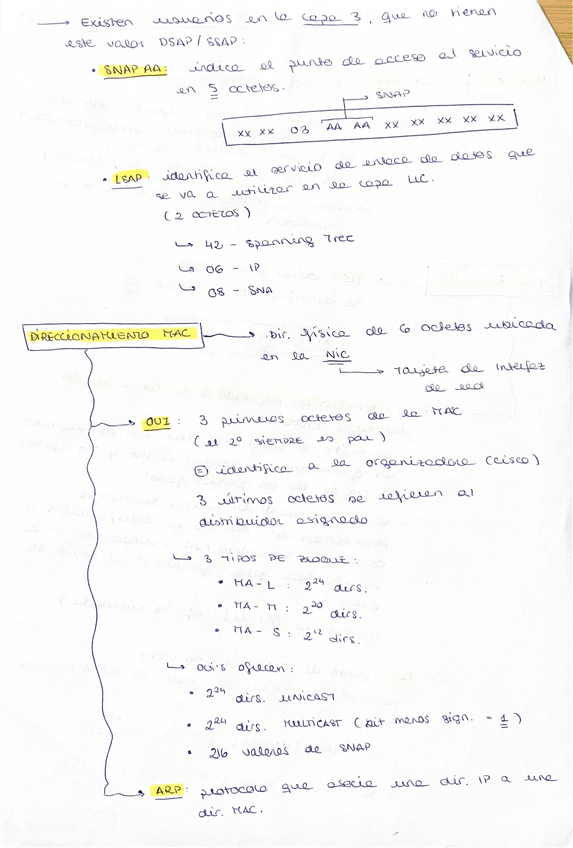 → Existen usuarios en la capa 3, que no tienen
este valor DSAP/SSAP:
• SNAP AA: indica el punto de acceso al servicio
en 5 octetos.
→ SNAP
XX XX 03 AA AA XX XX XX XX XX
• LSAP: identifica el servicio de enlace de datos que
se va a utilizar en la capa LLC.
(2 OCTETOS)
↳ 42 - Spanning Tree
↳ 06 - IP
↳ 08 - SNA
DIRECCIONAMIENTO MAC → Dir. física de 6 octetos ubicada
en la NIC
↳ Tarjeta de Interfaz
de red
→ OUI: 3 primeros octetos de la MAC
(el 2º SIEMPRE es par)
= identifica a la organizadora (cisco)
3 últimos octetos se refieren al
distribuidor asignado
↳ 3 TIPOS DE BLOQUE:
• MA-L: 2²⁴ dirs.
• MA-M: 2²⁰ dirs.
• MA-S: 2¹² dirs.
↳ OUI's ofrecen:
• 2²⁴ dirs. UNICAST
• 2²⁴ dirs. MULTICAST (bit menos sign. = 1)
• 216 valores de SNAP
→ ARP: protocolo que asocia una dir. IP a una
dir. MAC.